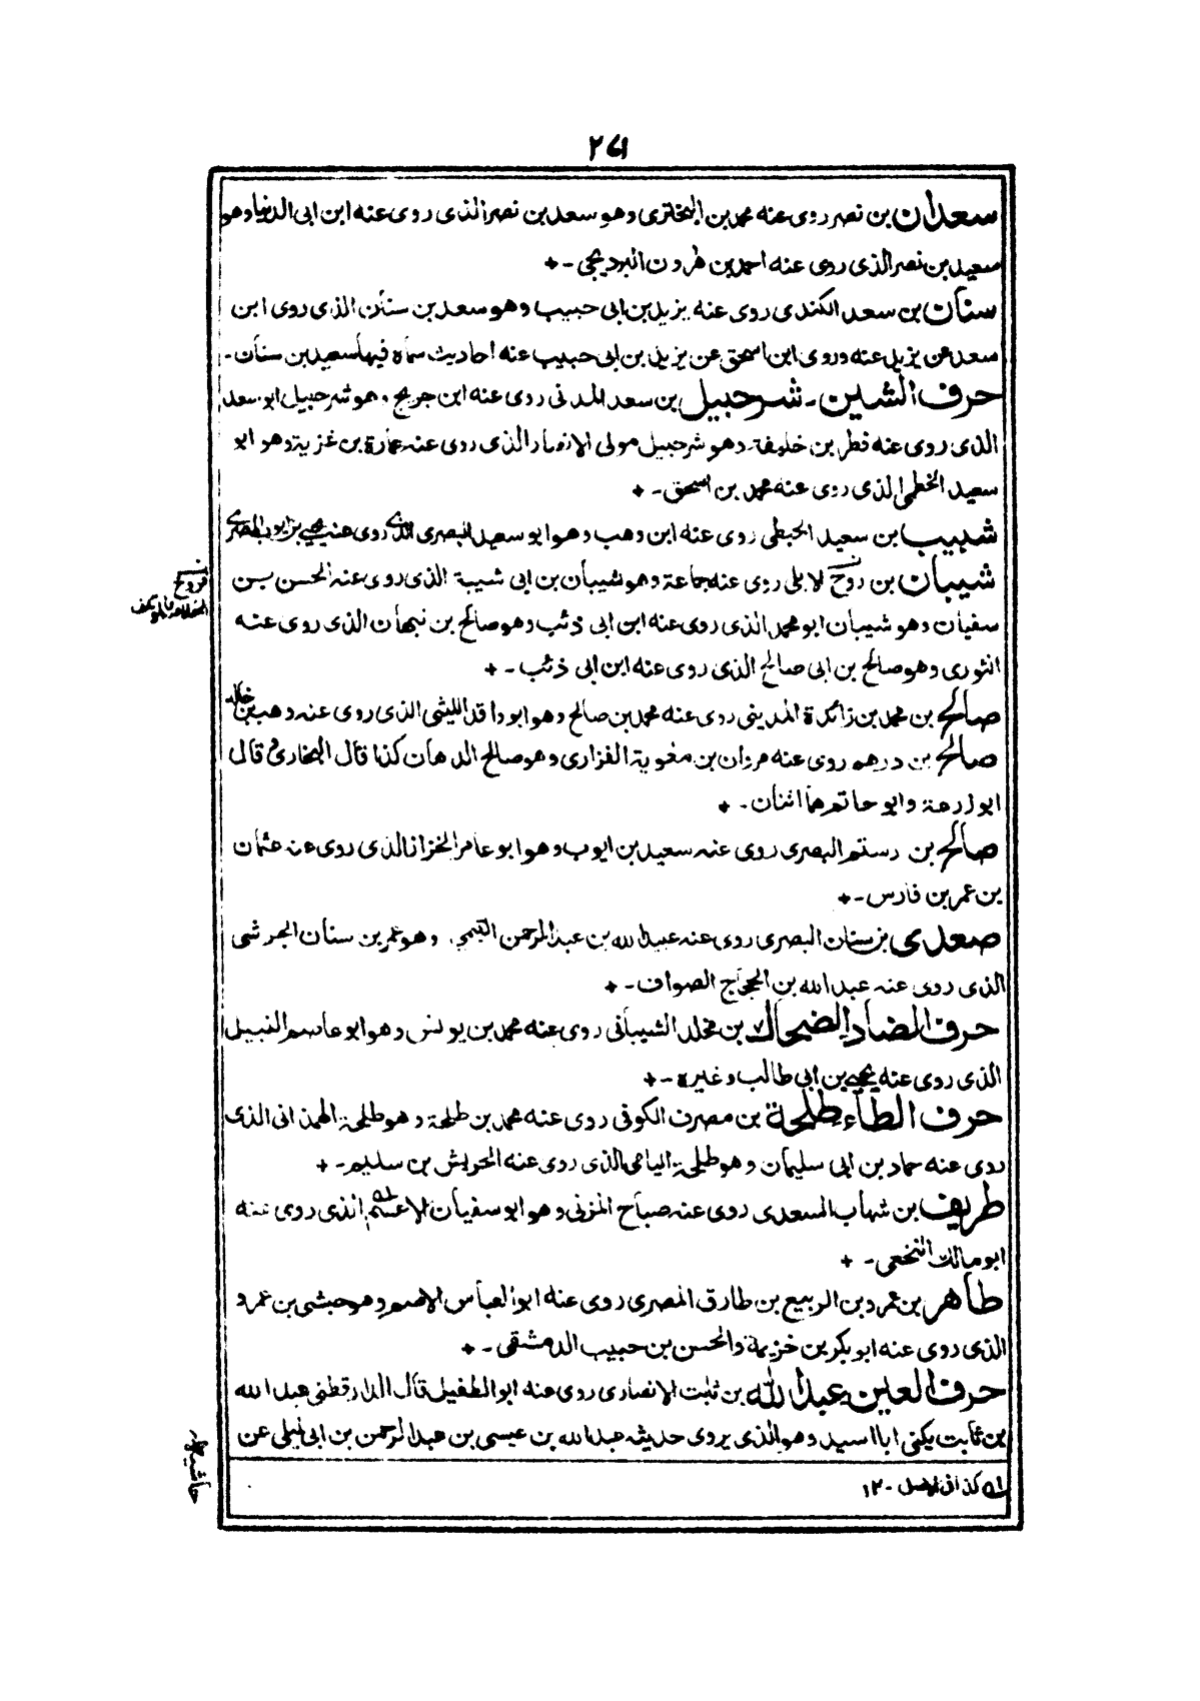 ٢٧١
سعدان بن نصر روى عنه محمد بن البختري وهو سعد بن نصر الذى روى عنه ابن ابى الدنيا وهو
سعيد بن نصر الذى روى عنه احمد بن هٰرون البرديجي -+
سنان بن سعد الكندى روى عنه يزيد بن ابى حبيب وهو سعد بن سنان الذى روى ابن
سعد عن يزيد عنه وروى ابن اسحق عن يزيد بن ابى حبيب عنه احاديث سماه فيها سعيد بن سنان -
حرف الشين - شرحبيل بن سعد المدنى روى عنه ابن جريج وهو شرحبيل ابو سعد
الذى روى عنه فطر بن خليفة وهو شرحبيل مولى الانصار الذى روى عنه عمارة بن غزية وهو ابو
سعيد الخطمى الذى روى عنه محمد بن اسحق -+
شبيب بن سعيد الحبطى روى عنه ابن وهب وهو ابو سعيد البصرى الذى روى عنه يحيى بن ايوب المصرى
شيبان بن روح الابلى روى عنه جماعة وهو شيبان بن ابى شيبة الذى روى عنه الحسن بن
فروخ
سفيان وهو شيبان ابو محمد الذى روى عنه ابن ابى ذئب وهو صالح بن نبهان الذى روى عنه
الثورى وهو صالح بن ابى صالح الذى روى عنه ابن ابى ذئب -+
صالح بن محمد بن زائدة المدينى روى عنه محمد بن صالح وهو ابو واقد الليثى الذى روى عنه وهب بن خالد
صالح بن درهم روى عنه مروان بن مغوية الفزارى وهو صالح الدهان كذا قال البخارى قال
ابو زرعة وابو حاتم هما اثنان -+
صالح بن رستم البصرى روى عنه سعيد بن ايوب وهو ابو عامر الخزاز الذى روى عنه عثمان
بن عمر بن فارس -+
صعدى بن سنان البصرى روى عنه عبيد الله بن عبد الرحمن التيمى وهو عمر بن سنان الجرشى
الذى روى عنه عبد الله بن الحجاج الصواف -+
حرف الضاد الضحاك بن مخلد الشيبانى روى عنه محمد بن يونس وهو ابو عاصم النبيل
الذى روى عنه يحيى بن ابى طالب وغيره -+
حرف الطاء طلحة بن مصرف الكوفى روى عنه محمد بن طلحة وهو طلحة الهمدانى الذى
روى عنه حماد بن ابى سليمان وهو طلحة اليامى الذى روى عنه الحريش بن سليم -+
طريف بن شهاب السعدى روى عنه صباح المزنى وهو ابو سفيان الاعسم الذى روى عنه
ابو مالك النخعى -+
طاهر بن عمرو بن الربيع بن طارق المصرى روى عنه ابو العباس الاصم وهو حبشى بن عمرو
الذى روى عنه ابو بكر بن خزيمة والحسن بن حبيب الدمشقى -+
حرف العين عبد الله بن ثابت الانصارى روى عنه ابو الطفيل قال الدارقطنى عبد الله
بن ثابت يكنى ابا اسيد وهو الذى يروى حديثه عبد الله بن عيسى بن عبد الرحمن بن ابى ليلى عن
حاشيه
له كذا فى الاصل -١٢